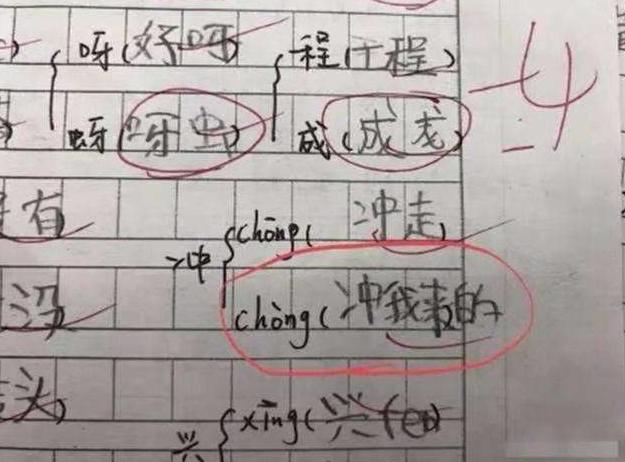 呀(好呀) 程(工程)
蚜(呀虫) 成(成龙)
-4
有
冲 chōng(冲走)
没 chòng(冲我来的
头)
兴 xīng(兴